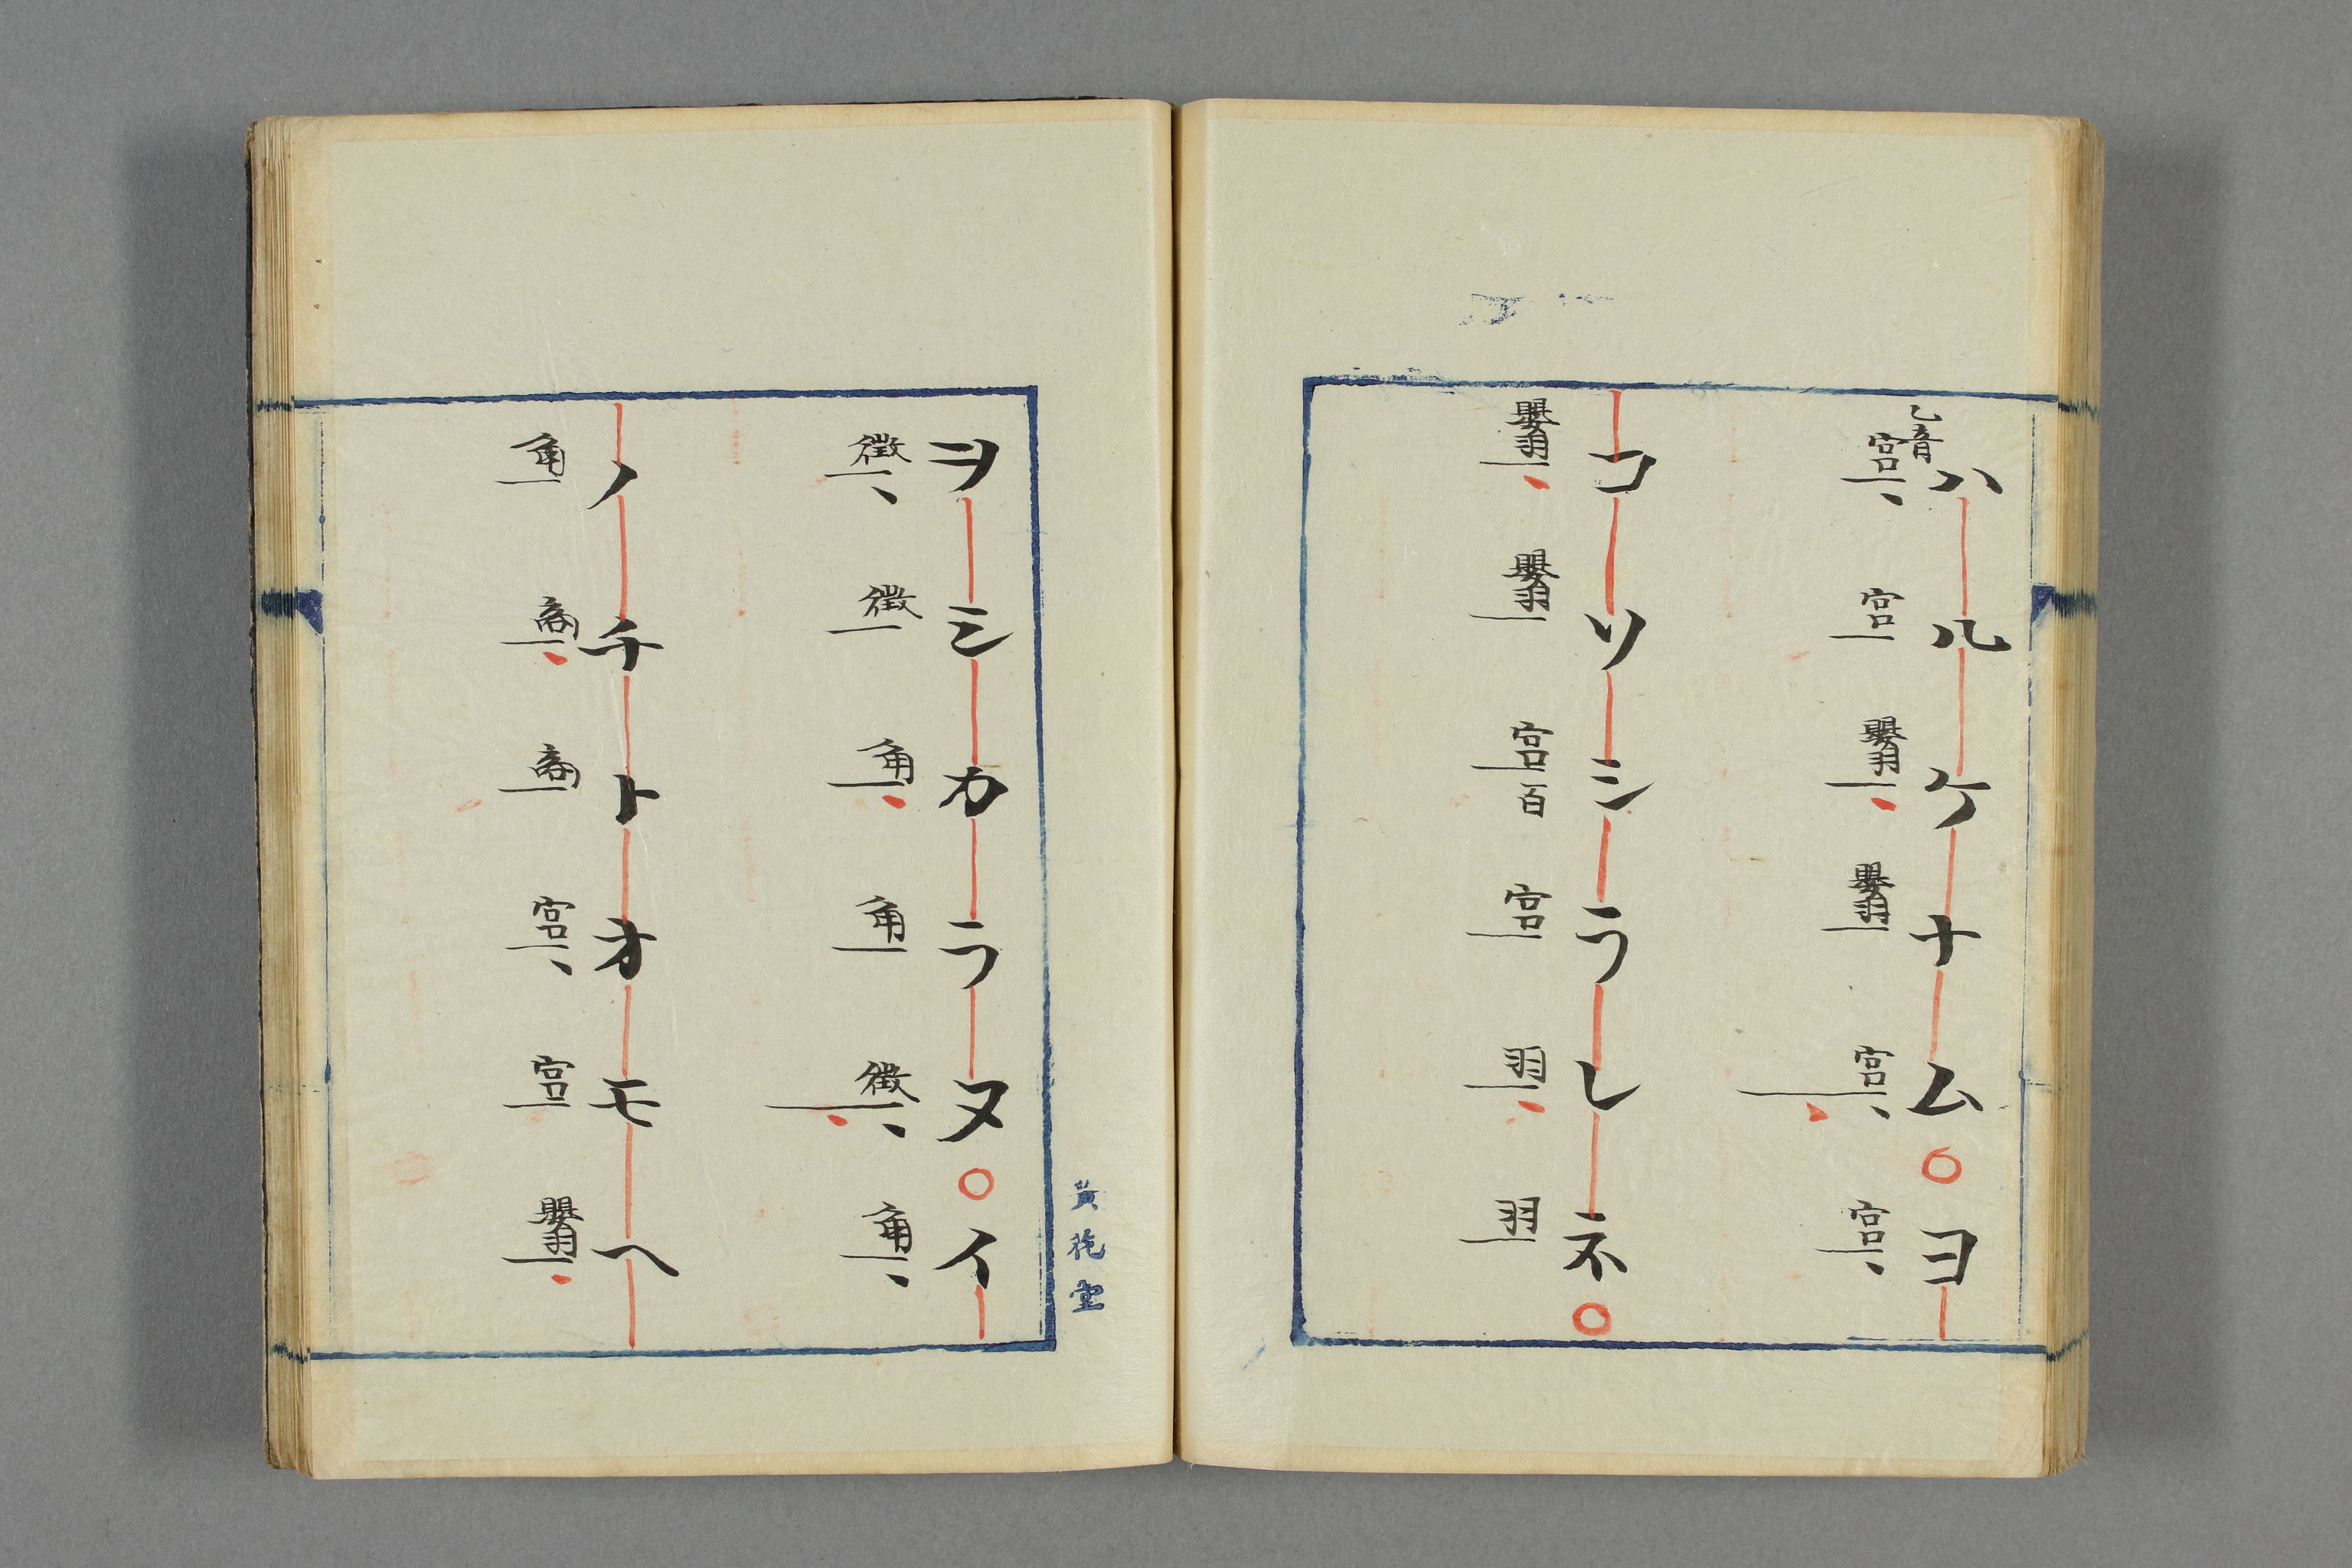 ハルケナム〇ヨ
乙音
宮、宮嬰羽、嬰羽宮、、宮、
コソシラレネ〇
嬰羽、嬰羽宮百宮羽、羽
ヲミカラヌ〇イ
徴、徴角、角徴、、角、
ノチトオモヘ
角商、商宮、宮嬰羽、
黄花堂